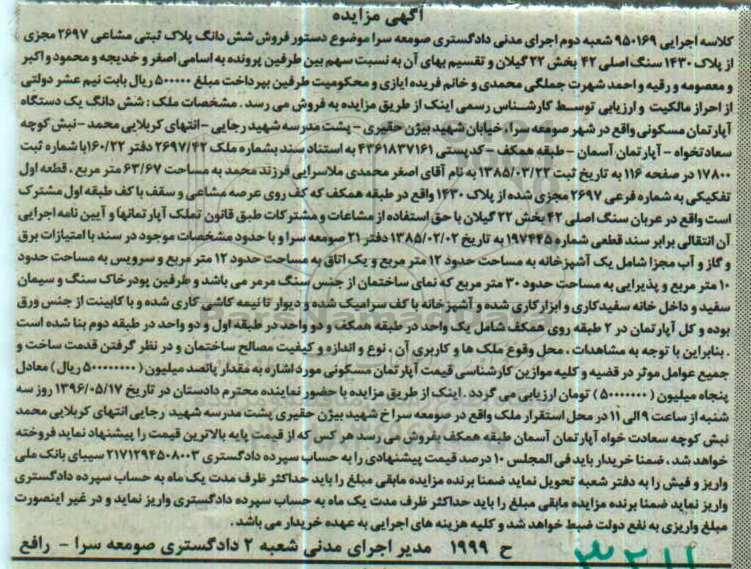 آگهی مزایده
کلاسه اجرایی ۹۵۰۱۶۹ شعبه دوم اجرای مدنی دادگستری صومعه سرا موضوع دستور فروش شش دانگ پلاک ثبتی مشاعی ۲۶۹۷ مجزی
از پلاک ۱۴۳۰ سنگ اصلی ۴۲ بخش ۲۲ گیلان و تقسیم بهای آن به نسبت سهم بین طرفین پرونده به اسامی اصغر و خدیجه و محمود و اکبر
و معصومه و رقیه و احمد شهرت جملگی محمدی و خانم فریده ایازی و محکومیت طرفین بپرداخت مبلغ ۵۰۰۰۰۰ ریال بابت نیم عشر دولتی
از احراز مالکیت و ارزیابی توسط کارشناس رسمی اینک از طریق مزایده به فروش می رسد . مشخصات ملک : شش دانگ یک دستگاه
آپارتمان مسکونی واقع در شهر صومعه سرا، خیابان شهید بیژن حقیری - پشت مدرسه شهید رجایی - انتهای کربلایی محمد - نبش کوچه
سعادتخواه - آپارتمان آسمان - طبقه همکف - کدپستی ۴۳۶۱۸۳۷۱۶۱ به استناد سند بشماره ملک ۲۶۹۷/۴۲ دفتر ۱۶۰/۲۲ با شماره ثبت
۱۷۸۰۰ در صفحه ۱۱۶ به تاریخ ثبت ۱۳۸۵/۰۳/۲۲ به نام آقای اصغر محمدی ملاسرایی فرزند محمد به مساحت ۶۳/۶۷ متر مربع . قطعه اول
تفکیکی به شماره فرعی ۲۶۹۷ مجزی شده از پلاک ۱۴۳۰ واقع در طبقه همکف که کف روی عرصه مشاعی و سقف با کف طبقه اول مشترک
است واقع در عربان سنگ اصلی ۴۲ بخش ۲۲ گیلان با حق استفاده از مشاعات و مشترکات طبق قانون تملک آپارتمانها و آیین نامه اجرایی
آن انتقالی برابر سند قطعی شماره ۱۹۷۴۴۵ به تاریخ ۱۳۸۵/۰۲/۰۲ دفتر ۲۱ صومعه سرا و با حدود مشخصات موجود در سند با امتیازات برق
و گاز و آب مجزا شامل یک آشپزخانه به مساحت حدود ۱۲ متر مربع و یک اتاق به مساحت حدود ۱۲ متر مربع و سرویس به مساحت حدود
۱۰ متر مربع و پذیرایی به مساحت حدود ۳۰ متر مربع که نمای ساختمان از جنس سنگ مرمر می باشد و طرفین پودرخاک سنگ و سیمان
سفید و داخل خانه سفیدکاری و ابزارکاری شده و آشپزخانه با کف سرامیک شده و دیوار تا نیمه کاشی کاری شده و با کابینت از جنس ورق
بوده و کل آپارتمان در ۲ طبقه روی همکف شامل یک واحد در طبقه همکف و دو واحد در طبقه اول و دو واحد در طبقه دوم بنا شده است
. بنابراین با توجه به مشاهدات ، محل وقوع ملک ها و کاربری آن ، نوع و اندازه و کیفیت مصالح ساختمان و در نظر گرفتن قدمت ساخت و
جمیع عوامل موثر در قضیه و کلیه موازین کارشناسی قیمت آپارتمان مسکونی مورد اشاره به مقدار پانصد میلیون (۵۰۰۰۰۰۰۰۰ ریال) معادل
پنجاه میلیون (۵۰۰۰۰۰۰۰) تومان ارزیابی می گردد . اینک از طریق مزایده با حضور نماینده محترم دادستان در تاریخ ۱۳۹۶/۰۵/۱۷ روز سه
شنبه از ساعت ۹ الی ۱۱ در محل استقرار ملک واقع در صومعه سرا خ شهید بیژن حقیری پشت مدرسه شهید رجایی انتهای کربلایی محمد
نبش کوچه سعادت خواه آپارتمان آسمان طبقه همکف بفروش می رسد هر کس که از قیمت پایه بالاترین قیمت را پیشنهاد نماید فروخته
خواهد شد ، ضمنا خریدار باید فی المجلس ۱۰ درصد قیمت پیشنهادی را به حساب سپرده دادگستری ۲۱۷۱۲۹۴۵۰۸۰۰۳ سیبای بانک ملی
واریز و فیش را به دفتر شعبه تحویل نماید ضمنا برنده مزایده مابقی مبلغ را باید حداکثر ظرف مدت یک ماه به حساب سپرده دادگستری
واریز نماید ضمنا برنده مزایده مابقی مبلغ را باید حداکثر ظرف مدت یک ماه به حساب سپرده دادگستری واریز نماید و در غیر اینصورت
مبلغ واریزی به نفع دولت ضبط خواهد شد و کلیه هزینه های اجرایی به عهده خریدار می باشد .
ح ۱۹۹۹ مدیر اجرای مدنی شعبه ۲ دادگستری صومعه سرا - رافع